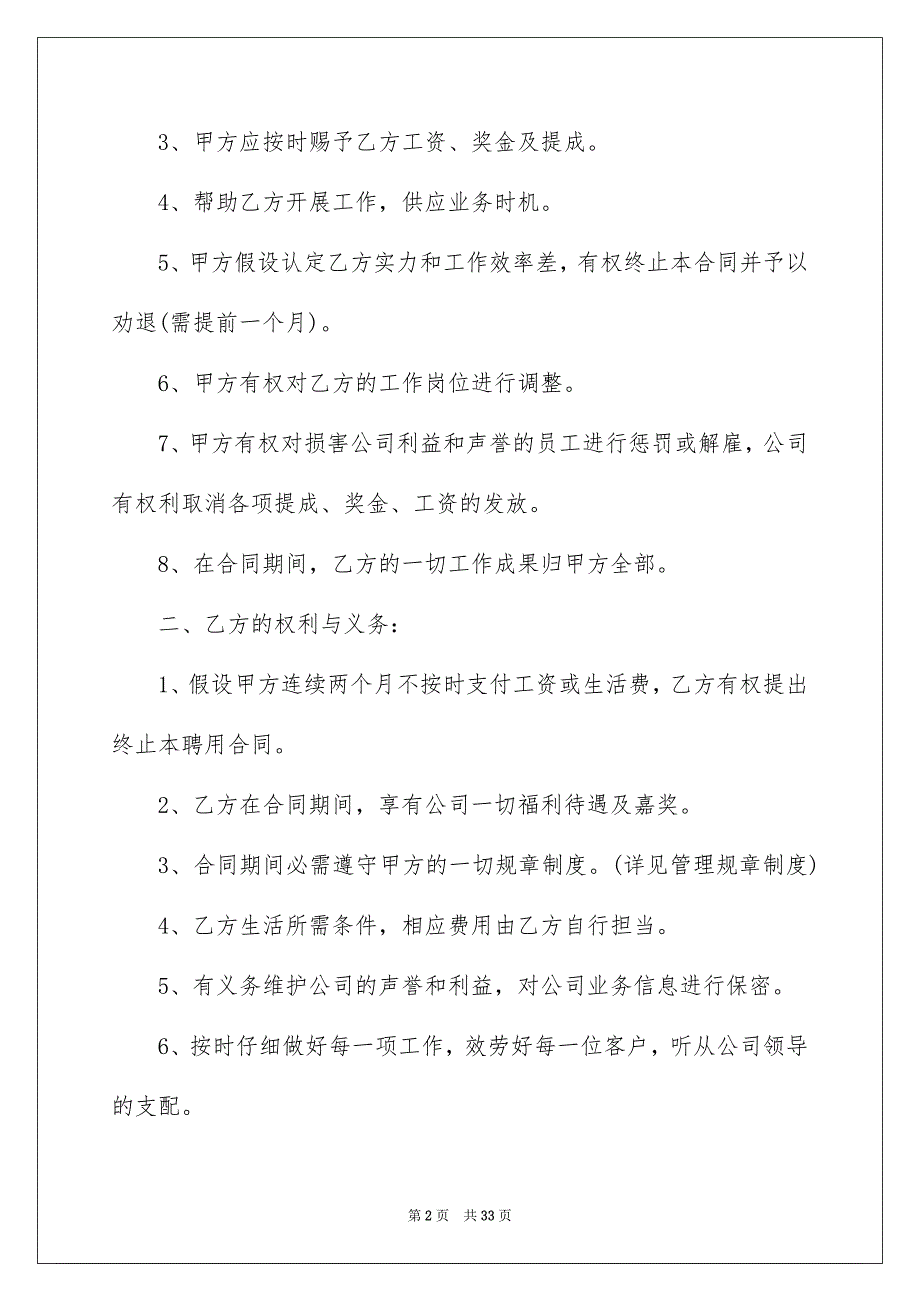 3、甲方应按时赐予乙方工资、奖金及提成。
4、帮助乙方开展工作，供应业务时机。
5、甲方假设认定乙方实力和工作效率差，有权终止本合同并予以
劝退(需提前一个月)。
6、甲方有权对乙方的工作岗位进行调整。
7、甲方有权对损害公司利益和声誉的员工进行惩罚或解雇，公司
有权利取消各项提成、奖金、工资的发放。
8、在合同期间，乙方的一切工作成果归甲方全部。
二、乙方的权利与义务：
1、假设甲方连续两个月不按时支付工资或生活费，乙方有权提出
终止本聘用合同。
2、乙方在合同期间，享有公司一切福利待遇及嘉奖。
3、合同期间必需遵守甲方的一切规章制度。(详见管理规章制度)
4、乙方生活所需条件，相应费用由乙方自行担当。
5、有义务维护公司的声誉和利益，对公司业务信息进行保密。
6、按时仔细做好每一项工作，效劳好每一位客户，听从公司领导
的支配。
第 2 页 共 33 页